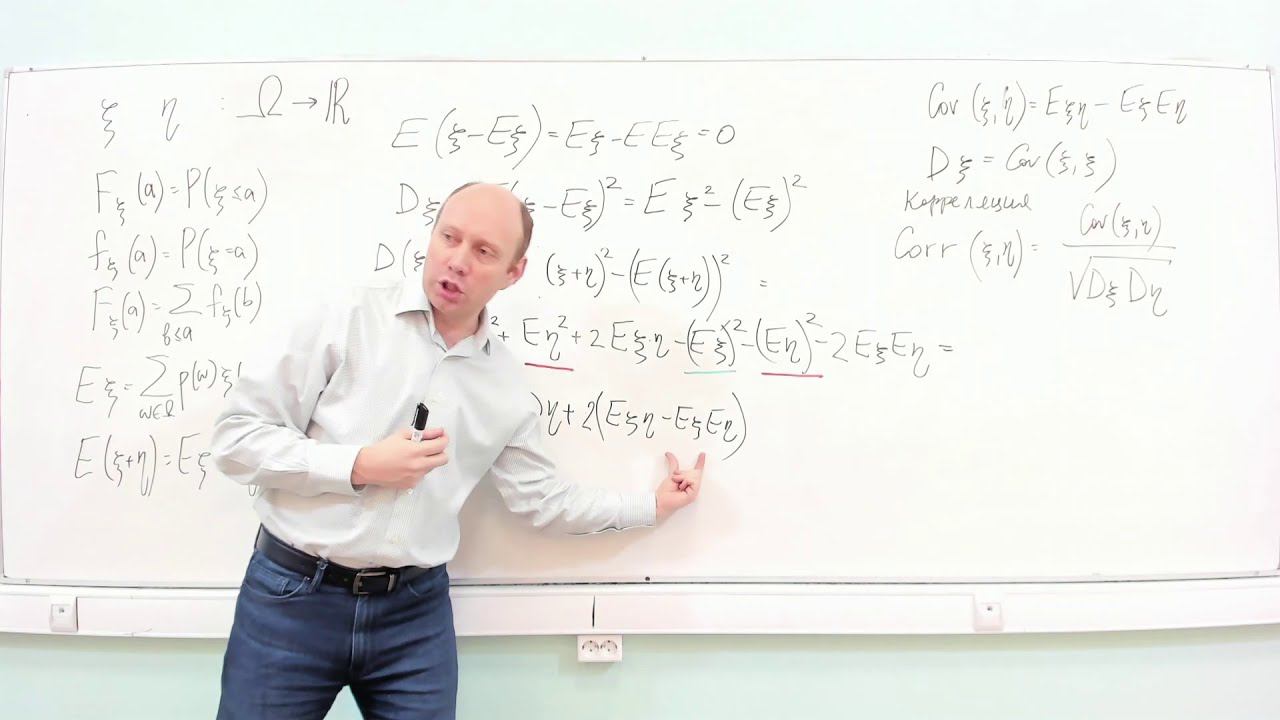 ξ η : Ω → ℝ
F_ξ(a) = P(ξ ≤ a)
f_ξ(a) = P(ξ = a)
F_ξ(a) = ∑_{b≤a} f_ξ(b)
Eξ = ∑_{w∈Ω} p(w) ξ(
E(ξ+η) = Eξ
E(ξ − Eξ) = Eξ − EEξ = 0
Dξ (ξ − Eξ)² = Eξ² − (Eξ)²
D(ξ (ξ+η)² − (E(ξ+η))² =
² + Eη² + 2Eξ·η − (Eξ)² − (Eη)² − 2EξEη =
η + 2(Eξη − EξEη)
Cov(ξ,η) = Eξη − EξEη
Dξ = Cov(ξ,ξ)
Корреляция
Corr(ξ,η) = Cov(ξ,η) / √(Dξ Dη)